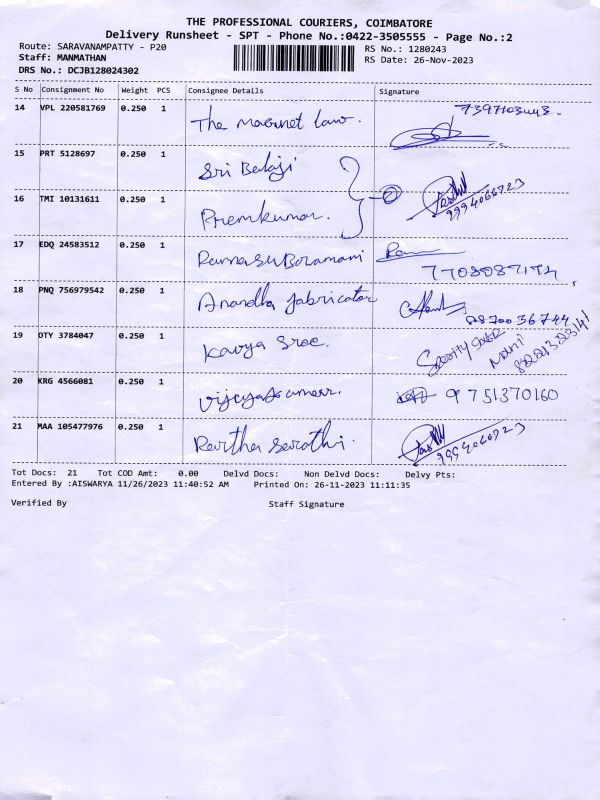 THE PROFESSIONAL COURIERS, COIMBATORE
Delivery Runsheet - SPT - Phone No.:0422-3505555 - Page No.:2
Route: SARAVANAMPATTY - P20
RS No.: 1280243
Staff: MANMATHAN
RS Date: 26-Nov-2023
DRS No.: DCJB128024302
S No Consignment No Weight PCS Consignee Details Signature
14 VPL 220581769 0.250 1 The Magnet law.
15 PRT 5128697 0.250 1 Sri Balaji
16 TMI 10131611 0.250 1 Premkumar. 9994066723
17 EDQ 24583512 0.250 1 Ramasuboramani
18 PNQ 756979542 0.250 1 Anandha fabricator
19 DTY 3784047 0.250 1 Kavya Sree.
20 KRG 4566081 0.250 1 Vijayakumar. 9751370160
21 MAA 105477976 0.250 1 Partha Sarathi. 9994066723
Tot Docs: 21 Tot COD Amt: 0.00 Delvd Docs: Non Delvd Docs: Delvy Pts:
Entered By :AISWARYA 11/26/2023 11:40:52 AM Printed On: 26-11-2023 11:11:35
Verified By Staff Signature